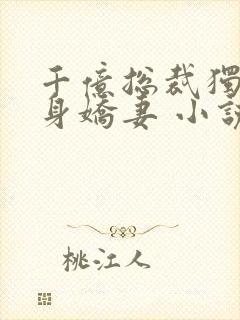 千億總裁獨
身嬌妻 小說
桃江人